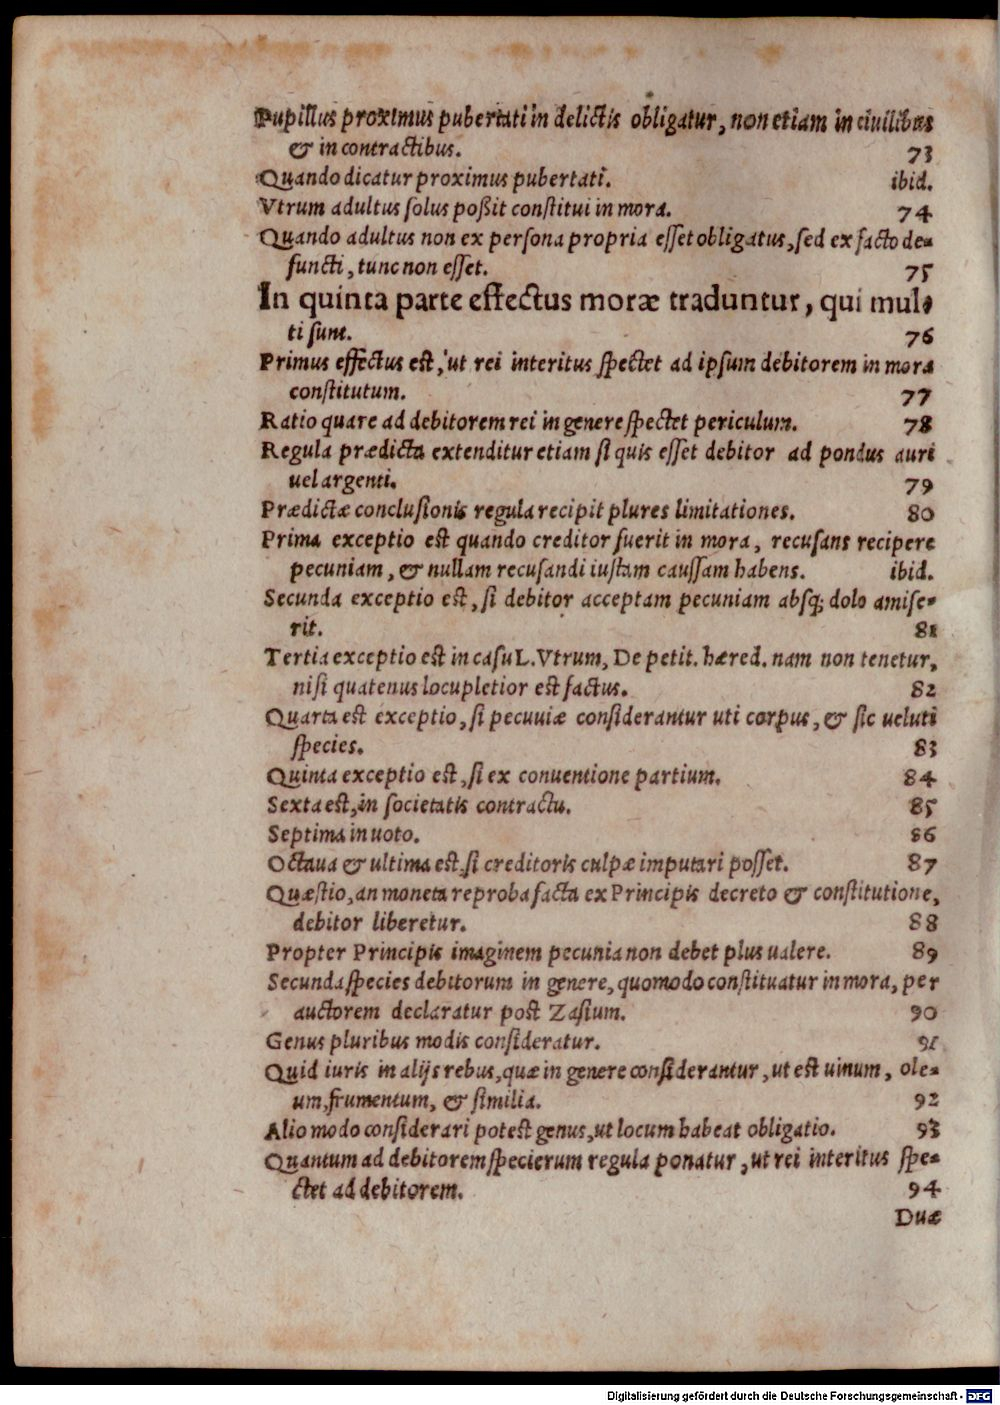 Pupillus proximus pubertati in delictis obligatur, non etiam in ciuilibus
& in contractibus. 73
Quando dicatur proximus pubertati. ibid.
Vtrum adultus ſolus poßit conſtitui in mora. 74
Quando adultus non ex perſona propria eſſet obligatus, ſed ex facto de-
functi, tunc non eſſet. 75
In quinta parte effectus moræ traduntur, qui mul-
ti ſunt. 76
Primus effectus est, ut rei interitus ſpectet ad ipſum debitorem in mora
conſtitutum. 77
Ratio quare ad debitorem rei in genere ſpectet periculum. 78
Regula prædicta extenditur etiam ſi quis eſſet debitor ad pondus auri
uel argenti. 79
Prædictæ concluſionis regula recipit plures limitationes. 80
Prima exceptio est quando creditor fuerit in mora, recuſans recipere
pecuniam, & nullam recuſandi iuſtam cauſſam habens. ibid.
Secunda exceptio est, ſi debitor acceptam pecuniam abſq; dolo amiſe-
rit. 81
Tertia exceptio est in caſu L. Vtrum, De petit. hæred. nam non tenetur,
niſi quatenus locupletior est factus. 82
Quarta est exceptio, ſi pecuuiæ conſiderantur uti corpus, & ſic ueluti
ſpecies. 83
Quinta exceptio est, ſi ex conuentione partium. 84
Sexta est, in ſocietatis contractu. 85
Septima in uoto. 86
Octaua & ultima est, ſi creditoris culpæ imputari poſſet. 87
Quæſtio, an moneta reproba facta ex Principis decreto & conſtitutione,
debitor liberetur. 88
Propter Principis imaginem pecunia non debet plus ualere. 89
Secunda ſpecies debitorum in genere, quomodo conſtituatur in mora, per
auctorem declaratur post Zaſium. 90
Genus pluribus modis conſideratur. 91
Quid iuris in alijs rebus, quæ in genere conſiderantur, ut est uinum, ole-
um, frumentum, & ſimilia. 92
Alio modo conſiderari potest genus, ut locum habeat obligatio. 93
Quantum ad debitorem ſpecierum regula ponatur, ut rei interitus ſpe-
ctet ad debitorem. 94
Duæ
Digitalisierung gefördert durch die Deutsche Forschungsgemeinschaft - DFG